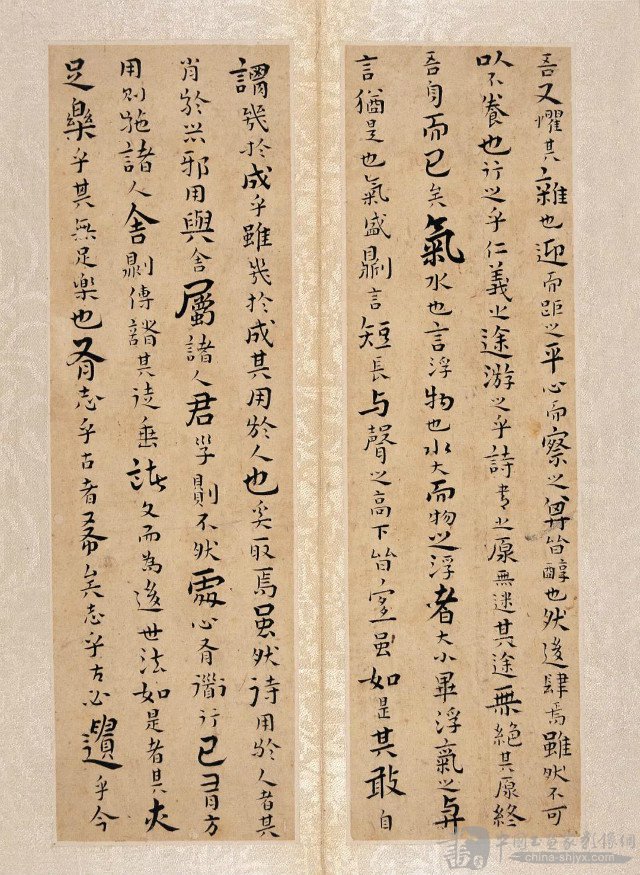 吾又懼其雜也迎而距之平心而察之其皆醇也然後肆焉雖然不可
以不養也行之乎仁義之途游之乎詩書之源無迷其途無絕其源終
吾身而已矣氣水也言浮物也水大而物之浮者大小畢浮氣之與
言猶是也氣盛則言短長与聲之高下皆宜雖如是其敢自
謂幾於成乎雖幾於成其用於人也奚取焉虽然待用於人者其
肖於器邪用與舍屬諸人君子則不然處心有道行已有方
用則施諸人舍則傳諸其徒垂諸文而為後世法如是者其亦
足樂乎其無足樂也有志乎古者希矣志乎古必遺乎今
china-shjyx.com